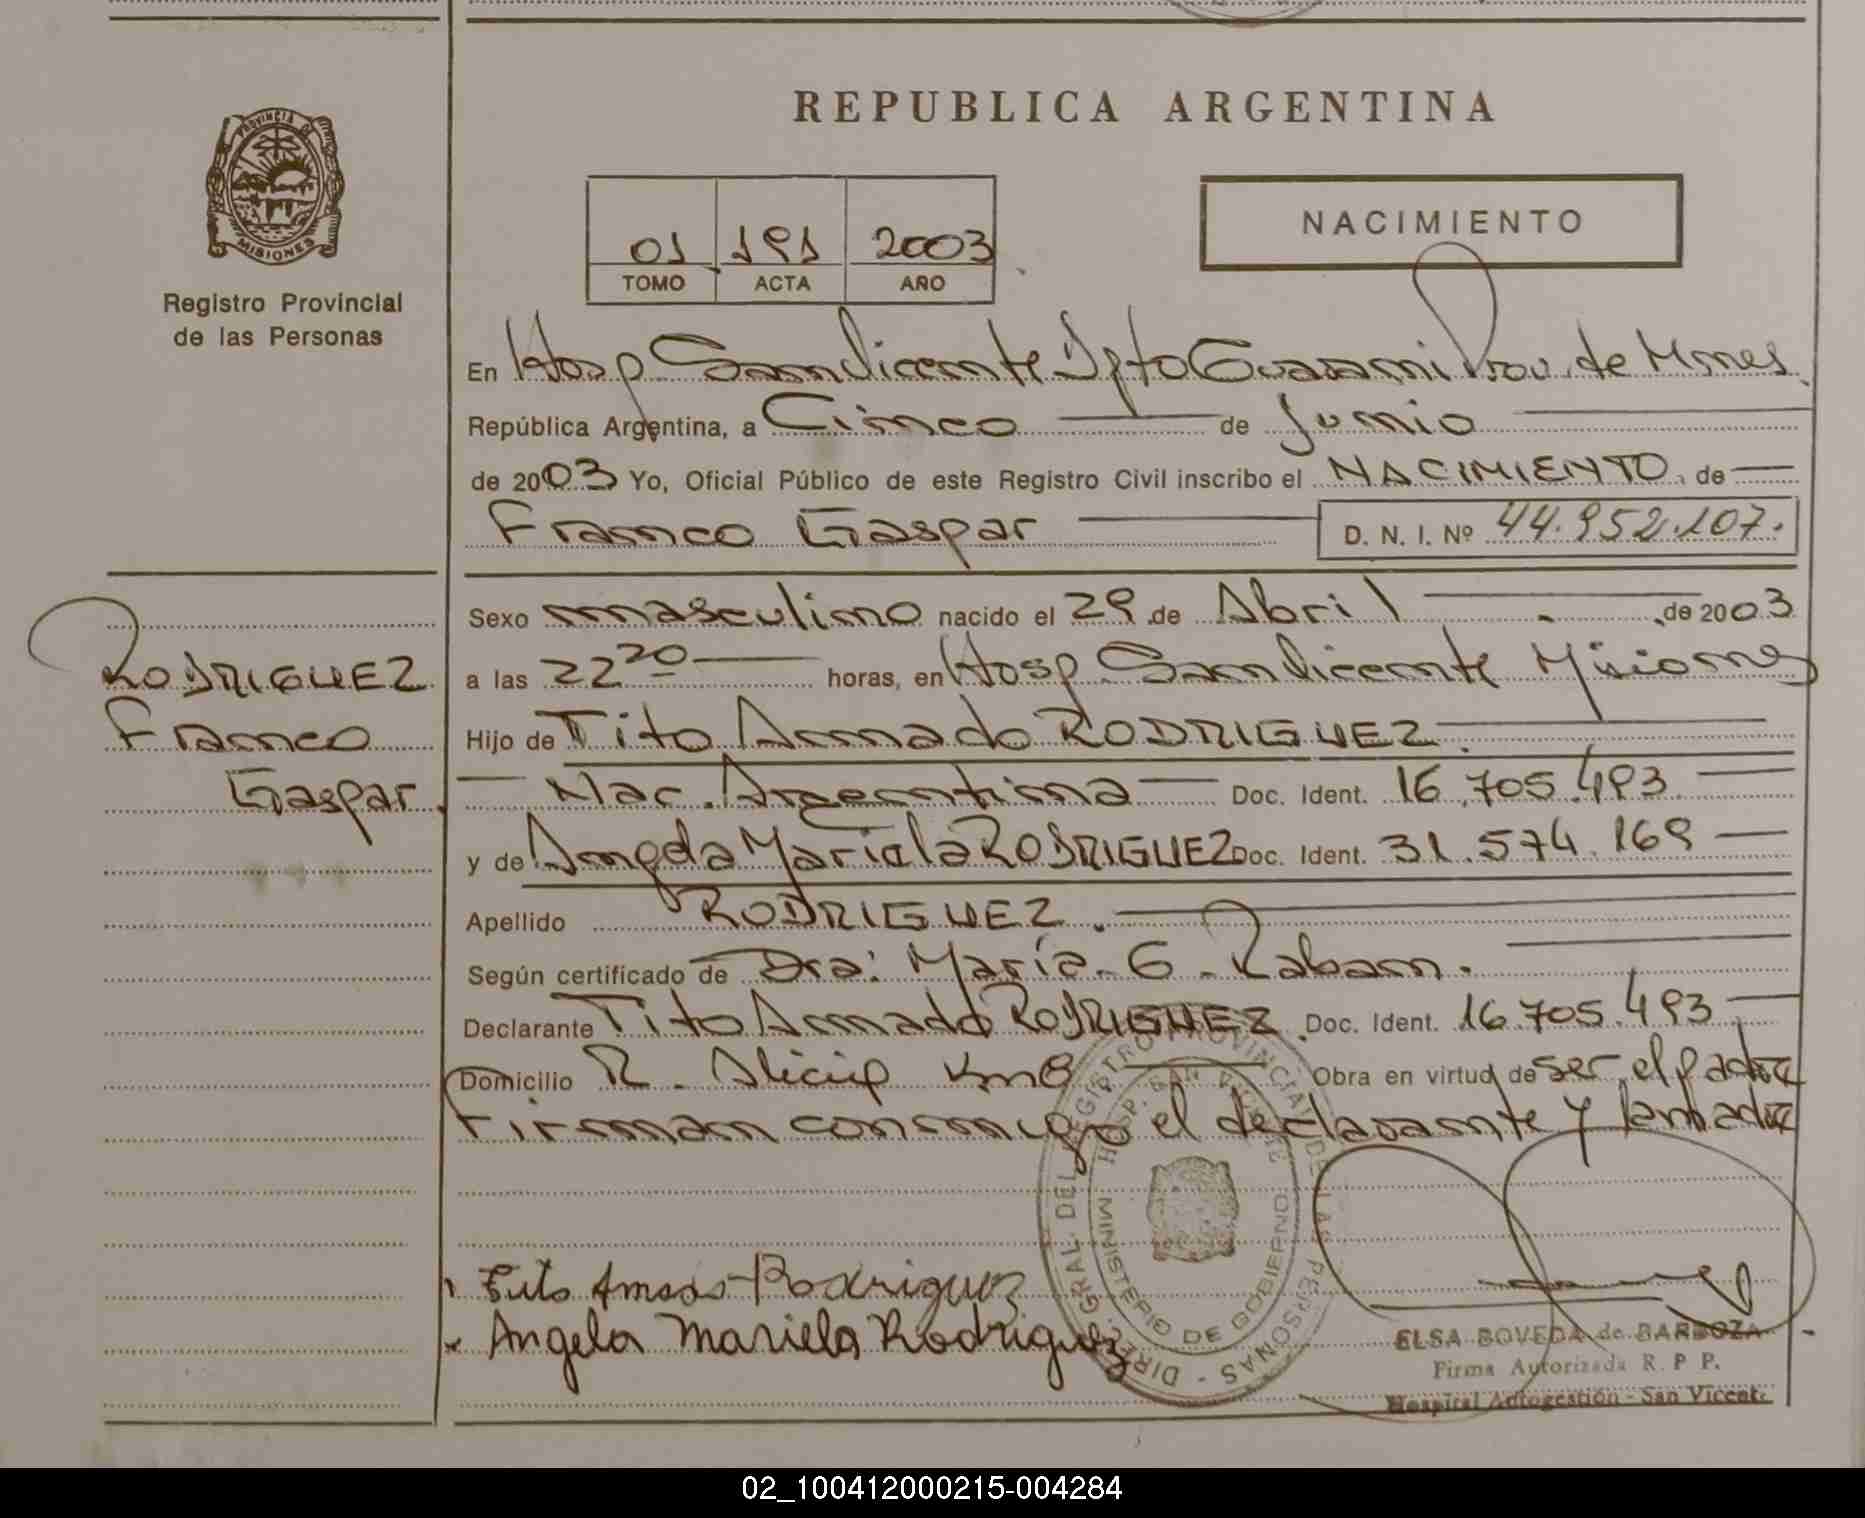 PROVINCIA DE
MISIONES
Registro Provincial
de las Personas
REPUBLICA ARGENTINA
01 191 2003
TOMO ACTA AÑO
NACIMIENTO
En Hosp San Vicente Dpto Guarani Prov. de Mnes.
República Argentina, a Cinco de Junio
de 2003 Yo, Oficial Público de este Registro Civil inscribo el NACIMIENTO de
Franco Gaspar D. N. I. Nº 44.952.107.
RODRIGUEZ
Franco
Gaspar.
Sexo masculino nacido el 29 de Abril de 2003
a las 22 20 horas, en Hosp San Vicente Misiones
Hijo de Tito Armado RODRIGUEZ.
Nac. Argentina Doc. Ident. 16.705.493
y de Angela Mariela RODRIGUEZ Doc. Ident. 31.574.169
Apellido RODRIGUEZ.
Según certificado de Dra: María G. Raban.
Declarante Tito Armado RODRIGUEZ. Doc. Ident. 16.705.493
Domicilio R. Obra en virtud de ser el padre
Firman conmigo el declarante y la madre
Tito Rodriguez
Angela Mariela Rodriguez
DIREC. GRAL. DEL REGISTRO PROVINCIAL DE LAS PERSONAS
HOSP. SAN VICENTE
MINISTERIO DE GOBIERNO
ELSA BOVEDA de BARBOZA
Firma Autorizada R. P P.
Hospital Autogestión - San Vicente
02_100412000215-004284